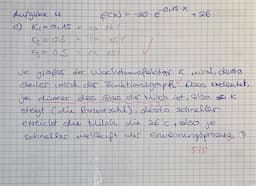 Aufgabe 4 f(x) = -20·e^0,15·x + 26
c) K₁ = 0,15
K₃ = 0,5
Je größer der Wachstumsfaktor K wird, desto
steiler wird der Funktionsgraph. Dies bedeutet,
je dünner das Glas der Milch ist, also K
steigt (die), desto schneller
erreicht die Milch die 26 C, also je
schneller verläuft der Erwärmungsprozess
5/5